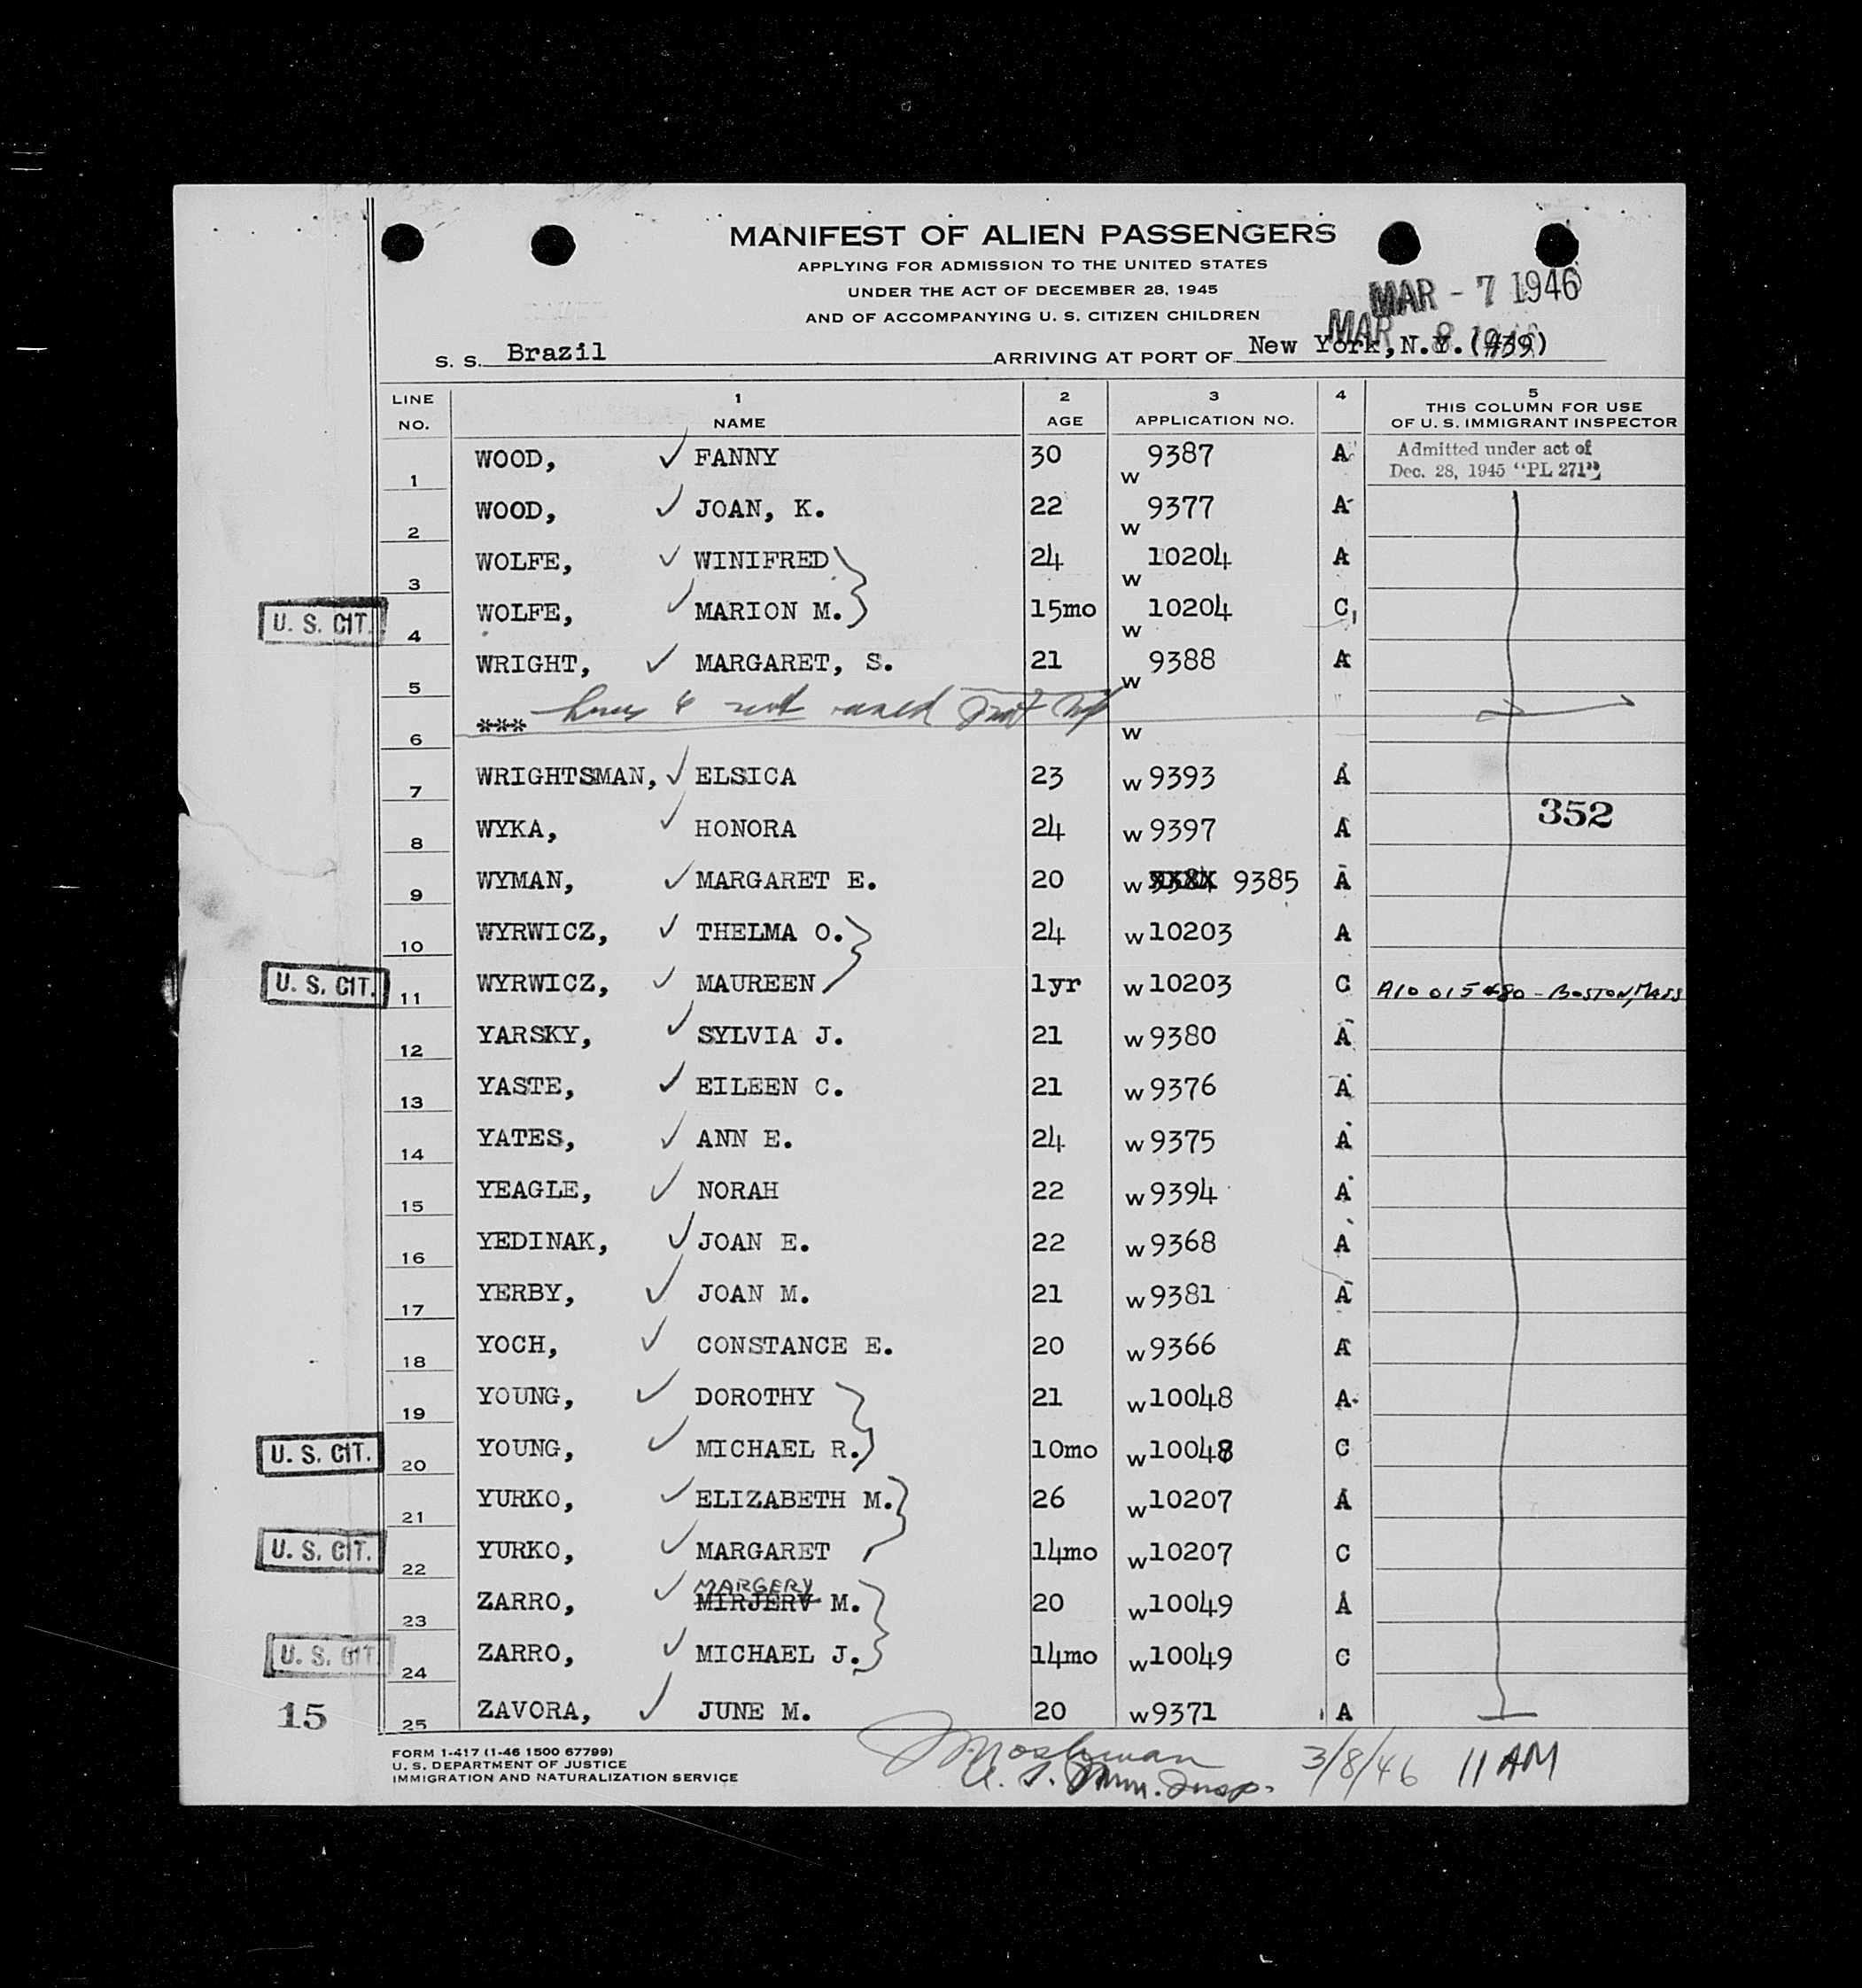 MANIFEST OF ALIEN PASSENGERS
APPLYING FOR ADMISSION TO THE UNITED STATES
UNDER THE ACT OF DECEMBER 28, 1945
AND OF ACCOMPANYING U. S. CITIZEN CHILDREN
MAR - 7 1946
MAR 8
S. S. Brazil ARRIVING AT PORT OF New York, N.Y.
LINE NO. 1 NAME 2 AGE 3 APPLICATION NO. 4 5 THIS COLUMN FOR USE OF U. S. IMMIGRANT INSPECTOR
1 WOOD, ✓ FANNY 30 W 9387 A Admitted under act of Dec. 28, 1945 "PL 271"
2 WOOD, ✓ JOAN, K. 22 W 9377 A
3 WOLFE, ✓ WINIFRED 24 W 10204 A
U. S. CIT. 4 WOLFE, ✓ MARION M. 15mo W 10204 C
5 WRIGHT, ✓ MARGARET, S. 21 W 9388 A
6 *** 6 not used W
7 WRIGHTSMAN, ✓ ELSICA 23 W 9393 A
352
8 WYKA, ✓ HONORA 24 W 9397 A
9 WYMAN, ✓ MARGARET E. 20 W 9385 A
10 WYRWICZ, ✓ THELMA O. 24 W 10203 A
U. S. CIT. 11 WYRWICZ, ✓ MAUREEN 1yr W 10203 C A10 015 480 - BOSTON, MASS
12 YARSKY, ✓ SYLVIA J. 21 W 9380 A
13 YASTE, ✓ EILEEN C. 21 W 9376 A
14 YATES, ✓ ANN E. 24 W 9375 A
15 YEAGLE, ✓ NORAH 22 W 9394 A
16 YEDINAK, ✓ JOAN E. 22 W 9368 A
17 YERBY, ✓ JOAN M. 21 W 9381 A
18 YOCH, ✓ CONSTANCE E. 20 W 9366 A
19 YOUNG, ✓ DOROTHY 21 W 10048 A
U. S. CIT. 20 YOUNG, ✓ MICHAEL R. 10mo W 10048 C
21 YURKO, ✓ ELIZABETH M. 26 W 10207 A
U. S. CIT. 22 YURKO, ✓ MARGARET 14mo W 10207 C
MARGERY
23 ZARRO, ✓ MIRJERY M. 20 W 10049 A
U. S. CIT. 24 ZARRO, ✓ MICHAEL J. 14mo W 10049 C
15 25 ZAVORA, ✓ JUNE M. 20 W 9371 A
FORM I-417 (1-46 1500 67799)
U. S. DEPARTMENT OF JUSTICE
IMMIGRATION AND NATURALIZATION SERVICE
U. S. Imm. Insp. 3/8/46 11 AM